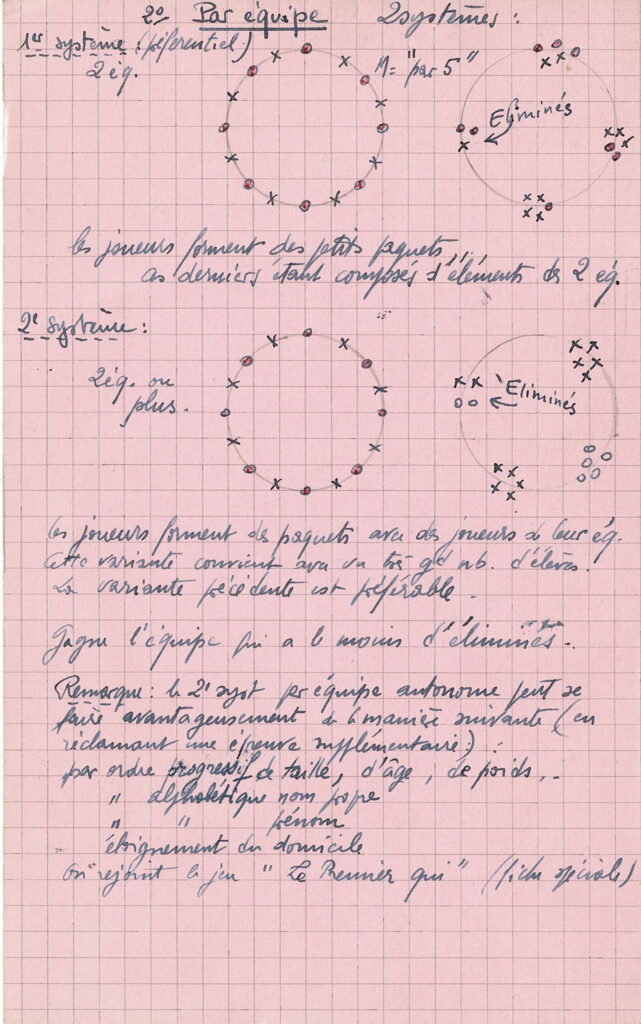 2º Par équipe 2 systèmes :
1er système (préférentiel)
2 éq.
M = "par 5"
Eliminés
les joueurs forment des petits paquets
ces derniers étant composés d'éléments des 2 éq.
2e système :
2 éq. ou
plus.
Eliminés
les joueurs forment des paquets avec des joueurs de leur éq.
Cette variante convient avec un très gd nb. d'élèves.
La variante précédente est préférable.
Gagne l'équipe qui a le moins d'éliminés.
Remarque : le 2e syst par équipe autonome peut se
faire avantageusement de la manière suivante (en
réclamant une épreuve supplémentaire) :
par ordre progressif de taille, d'âge, de poids, ..
" alphabétique nom propre
" " prénom
éloignement du domicile
On rejoint le jeu " Le Premier qui " (fiche spéciale)